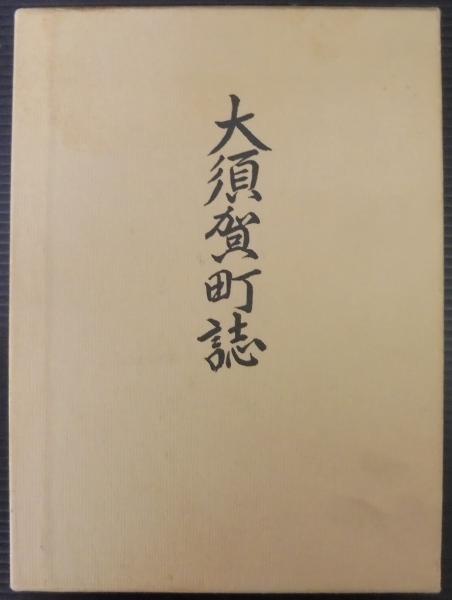 大須賀町誌